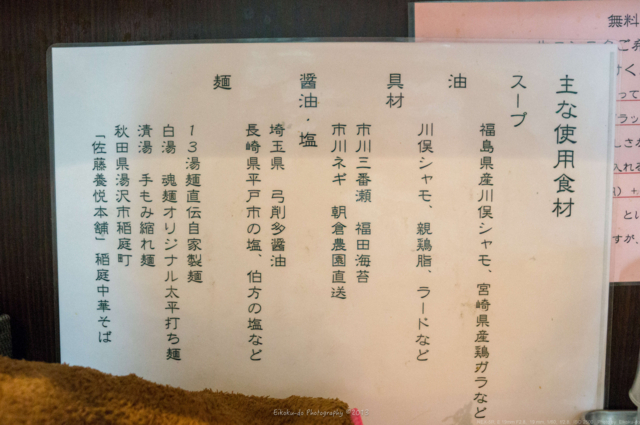 主な使用食材
スープ
福島県産川俣シャモ、宮崎県産鶏ガラなど
油
川俣シャモ、親鶏脂、ラードなど
具材
市川三番瀬 福田海苔
市川ネギ 朝倉農園直送
醤油・塩
埼玉県 弓削多醤油
長崎県平戸市の塩、伯方の塩など
麺
13湯麺直伝自家製麺
白湯 魂麺オリジナル太平打ち麺
清湯 手もみ縮れ麺
秋田県湯沢市稲庭町
「佐藤養悦本舗」稲庭中華そば
無料
Eikoku-do Photography © 2013